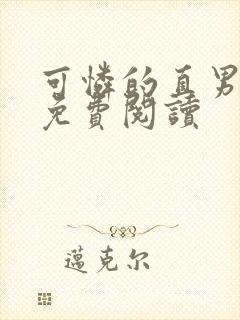 可憐的直男
免費閱讀
邁克尔